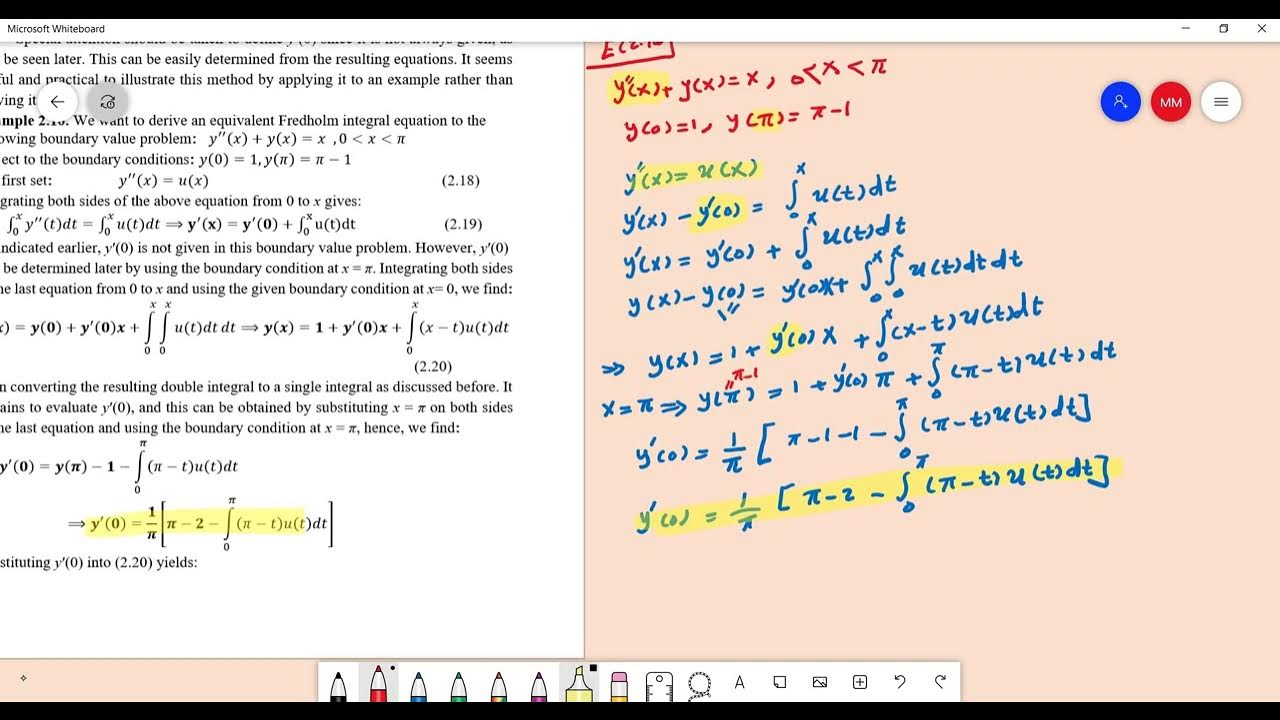 Microsoft Whiteboard
be seen later. This can be easily determined from the resulting equations. It seems
ful and practical to illustrate this method by applying it to an example rather than
ving it
mple 2.10. We want to derive an equivalent Fredholm integral equation to the
owing boundary value problem: y''(x) + y(x) = x , 0 < x < π
ect to the boundary conditions: y(0) = 1, y(π) = π − 1
first set: y''(x) = u(x) (2.18)
grating both sides of the above equation from 0 to x gives:
∫₀ˣ y''(t)dt = ∫₀ˣ u(t)dt ⟹ y'(x) = y'(0) + ∫₀ˣ u(t)dt (2.19)
indicated earlier, y'(0) is not given in this boundary value problem. However, y'(0)
be determined later by using the boundary condition at x = π. Integrating both sides
ne last equation from 0 to x and using the given boundary condition at x= 0, we find:
) = y(0) + y'(0)x + ∫₀ˣ ∫₀ˣ u(t)dt dt ⟹ y(x) = 1 + y'(0)x + ∫₀ˣ (x − t)u(t)dt
(2.20)
n converting the resulting double integral to a single integral as discussed before. It
ains to evaluate y'(0), and this can be obtained by substituting x = π on both sides
ne last equation and using the boundary condition at x = π, hence, we find:
y'(0) = y(π) − 1 − ∫₀^π (π − t)u(t)dt
⟹ y'(0) = 1/π [π − 2 − ∫₀^π (π − t)u(t)dt]
stituting y'(0) into (2.20) yields:
y''(x) + y(x) = x, 0 < x < π
y(0) = 1, y(π) = π − 1
y''(x) = u(x)
y'(x) − y'(0) = ∫₀ˣ u(t)dt
y'(x) = y'(0) + ∫₀ˣ u(t)dt
y(x) − y(0) = y'(0)x + ∫₀ˣ ∫₀ˣ u(t)dt dt
1
⇒ y(x) = 1 + y'(0)x + ∫₀ˣ (x−t)u(t)dt
π−1
x = π ⇒ y(π) = 1 + y'(0)π + ∫₀^π (π−t)u(t)dt
y'(0) = 1/π [π−1−1 − ∫₀^π (π−t)u(t)dt]
y'(0) = 1/π [π−2 − ∫₀^π (π−t)u(t)dt]
MM
A